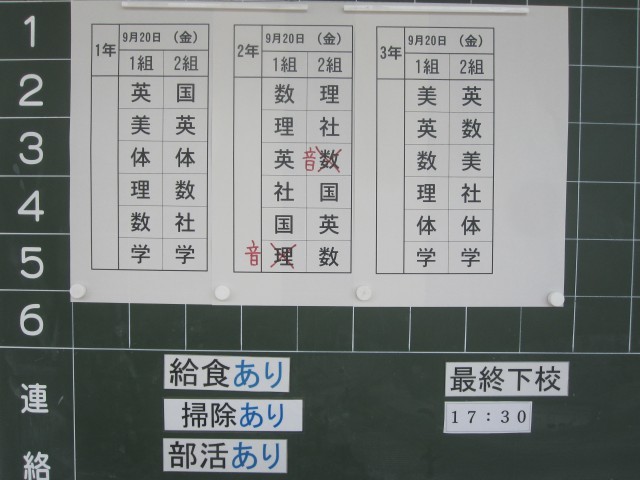 1
2
3
4
5
6
連絡
1年 9月20日 (金)
1組 2組
英 国
美 英
体 体
理 数
数 社
学 学
2年 9月20日 (金)
1組 2組
数 理
理 社
英 音数
社 国
国 英
音理 数
3年 9月20日 (金)
1組 2組
美 英
英 数
数 美
理 社
体 体
学 学
給食あり
掃除あり
部活あり
最終下校
17：30